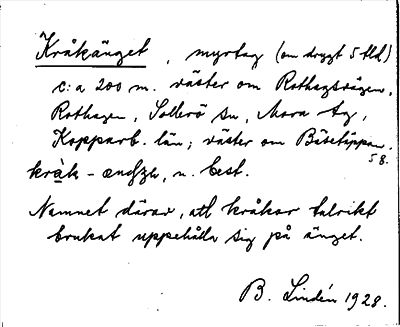 Kråkänget, myrtag (om drygt 5 tld)
c:a 200 m. väster om Rothagsvägen,
Rothagen, Sollerö sn, Mora tg,
Kopparb. län; väster om Båtetäppan.
58.
kråk- n. best.
Namnet därav, att kråkor talrikt
brukat uppehålla sig på änget.
B. Lindén 1928.